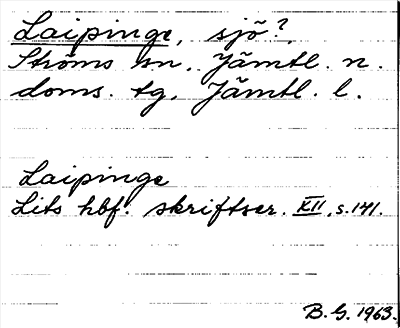 Laipinge, sjö?,
Ströms sn., Jämtl. n.
doms. tg, Jämtl. l.
Laipinge
Lits hbf:s skriftser. XII, s. 141.
B. G. 1963.